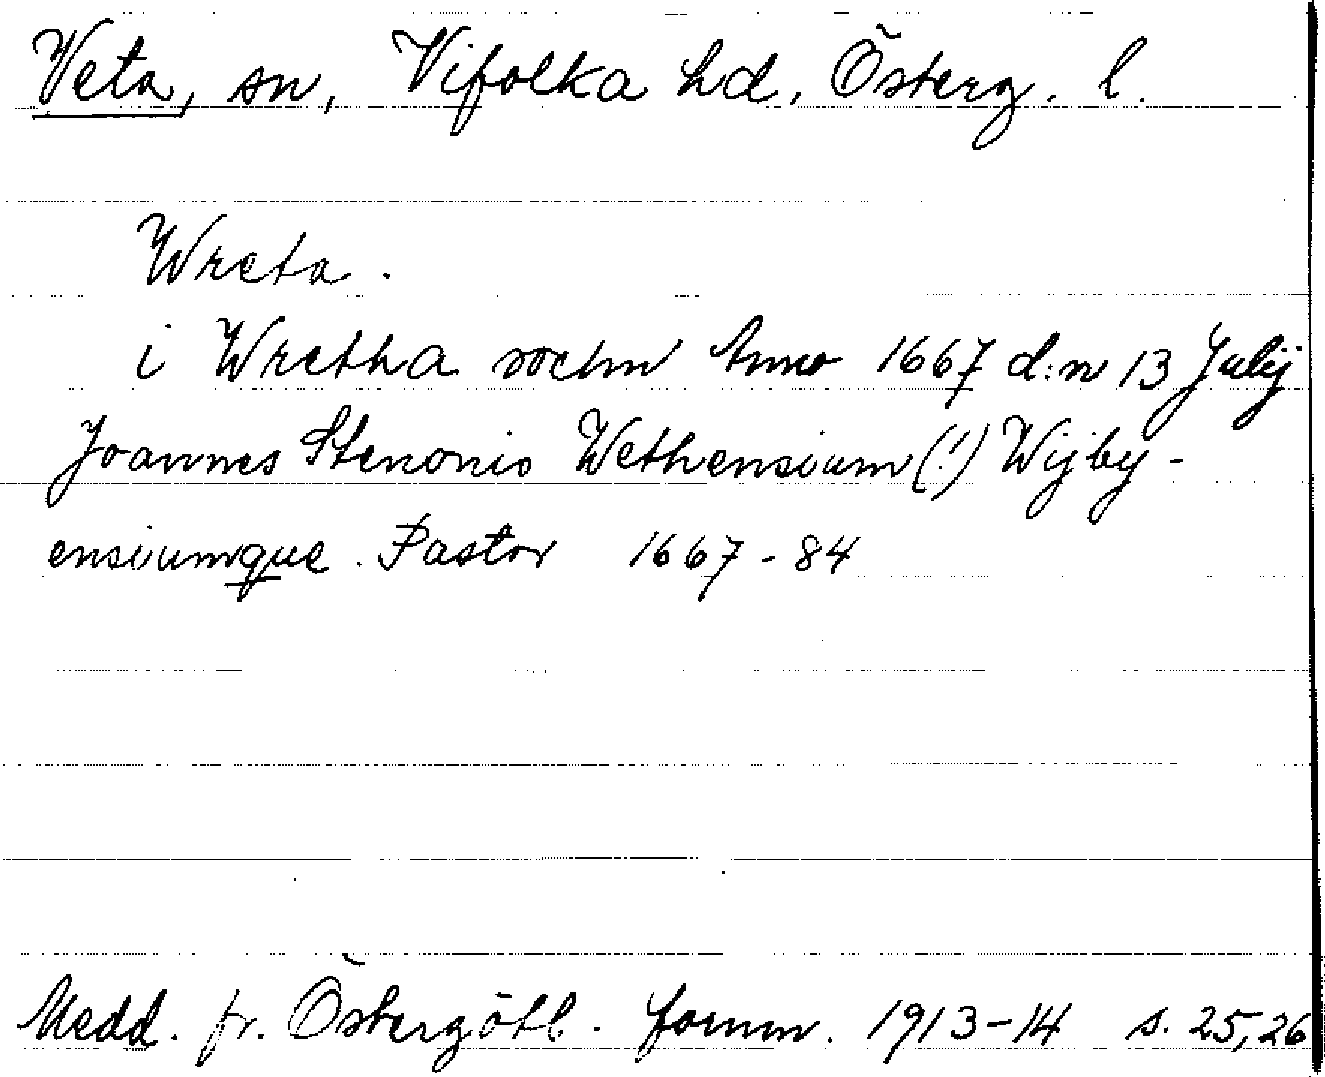 Veta, sn, Vifolka hd, Österg. l.
Wreta.
i Wretha sochn Anno 1667 d:n 13 Julij
Joannes Stenonis Wethensium (!) Wijby-
ensiumque. Pastor 1667-84
Medd. fr. Östergötl. fornm. 1913-14 s. 25, 26